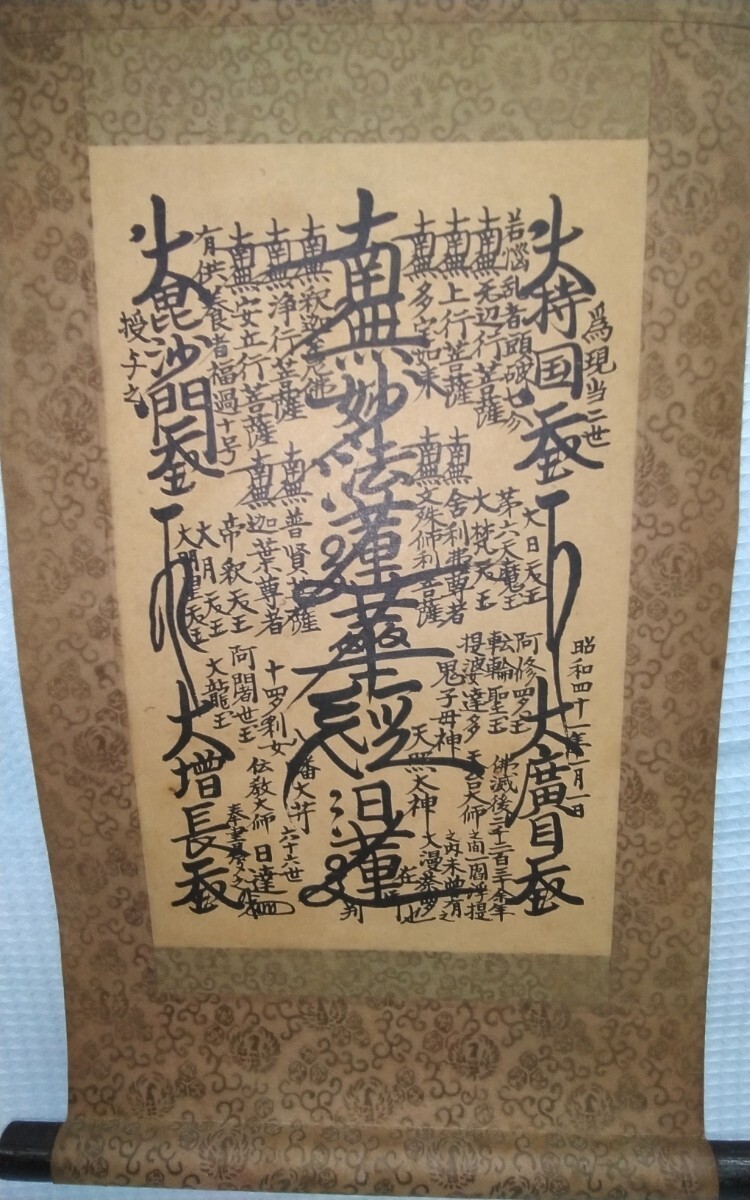 為現当二世
昭和四十一年一月一日
大持国天王
大廣目天王
若悩乱者頭破七分
南無无辺行菩薩
南無上行菩薩
南無多宝如来
大日天王
第六天魔王
大梵天王
南無舎利弗尊者
南無文殊師利菩薩
阿修羅王
転輪聖王
提婆達多
鬼子母神
天照太神
天台大師
佛滅後二千二百三十余年
之間一閻浮提
之内未曽有之
大漫荼羅也
南無妙法蓮華經
日蓮
在判
南無釈迦牟尼佛
南無浄行菩薩
南無安立行菩薩
有供養者福過十号
南無普賢菩薩
南無迦葉尊者
帝釈天王
大月天王
大明星天王
十羅刹女
阿闍世王
大龍王
八幡大菩薩
伝教大師
六十六世
日達
奉書写之
大毘沙門天王
授与之
大増長天王